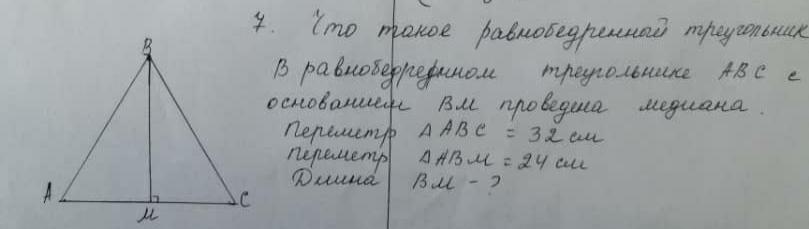 7. Что такое равнобедренный треугольник
В равнобедренном треугольнике ABC с
основанием BM проведена медиана.
Переметр ΔABC = 32 см
Переметр ΔABM = 24 см
Длина BM - ?
B
A
M
C